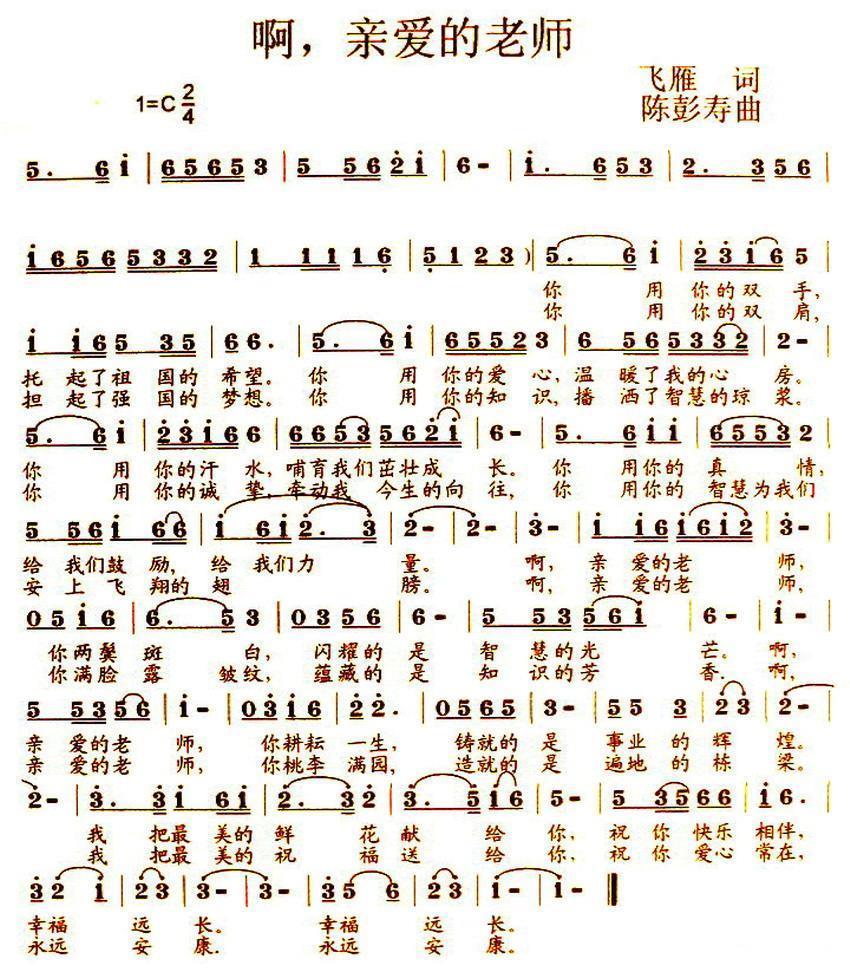 啊，亲爱的老师
飞雁 词
1=C 2/4
陈彭寿曲
5. 6 i | 6 5 6 5 3 | 5 5 6 2 i | 6 - | i. 6 5 3 | 2. 3 5 6 |
i 6 5 6 5 3 3 2 | 1 1 1 1 6 | 5 1 2 3 ) | 5. 6 i | 2 3 i 6 5 |
你 用 你 的 双 手，
你 用 你 的 双 肩，
i i 6 5 3 5 | 6 6. | 5. 6 i | 6 5 5 2 3 | 6 5 6 5 3 3 2 | 2 - |
托 起了祖 国的 希望。你 用 你的爱 心，温 暖了我的心 房。
担 起了强 国的 梦想。你 用 你的知 识，播 洒了智慧的琼 浆。
5. 6 i | 2 3 i 6 6 | 6 6 5 3 5 6 2 i | 6 - | 5. 6 i i | 6 5 5 3 2 |
你 用 你的汗 水，哺育我们茁壮成 长。你 用你的 真 情，
你 用 你的诚 挚，牵动我 今生的向 往，你 用你的 智慧为我们
5 5 6 i 6 6 | i 6 i 2. 3 | 2 - | 2 - | 3 - | i i 6 i 6 i 2 | 3 - |
给 我们鼓 励，给 我们力 量。 啊， 亲 爱的老 师，
安 上飞 翔的 翅 膀。 啊， 亲 爱的老 师，
0 5 i 6 | 6. 5 3 | 0 3 5 6 | 6 - | 5 5 3 5 6 i | 6 - | i - |
你两鬓 斑 白，闪耀的 是 智 慧的光 芒。啊，
你满脸 露 皱纹，蕴藏的 是 知 识的芳 香．啊，
5 5 3 5 6 | i - | 0 3 i 6 | 2 2. | 0 5 6 5 | 3 - | 5 5 3 | 2 3 | 2 - |
亲 爱的老 师， 你耕耘 一生， 铸就的 是 事业 的 辉 煌。
亲 爱的老 师， 你桃李 满园， 造就的 是 遍地 的 栋 梁。
2 - | 3. 3 i 6 i | 2. 3 2 | 3. 5 i 6 | 5 - | 5 3 5 6 6 | i 6. |
我 把最 美的 鲜 花 献 给 你，祝 你 快乐 相伴，
我 把最 美的 祝 福 送 给 你，祝 你 爱心 常在，
3 2 i | 2 3 | 3 - | 3 - | 3 5 6 | 2 3 | i - | i - ‖
幸福 远 长。 幸福 远 长。
永远 安 康． 永远 安 康。